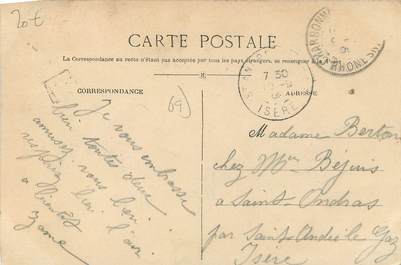 20t
CARTE POSTALE
La Correspondance au recto n'étant pas acceptée par tous les pays étrangers, se renseigner à la
CORRESPONDANCE
ADRESSE
(69)
7 30
ISÈRE
CHARBONN
RHONE
Je vous embrasse
bien toutes deux
amusez vous bien
respirez bien l'air
à bientôt
Madame Berton
chez Mme Béjuis
à Saint-Ondras
par Saint-André-le-Gaz
Isère